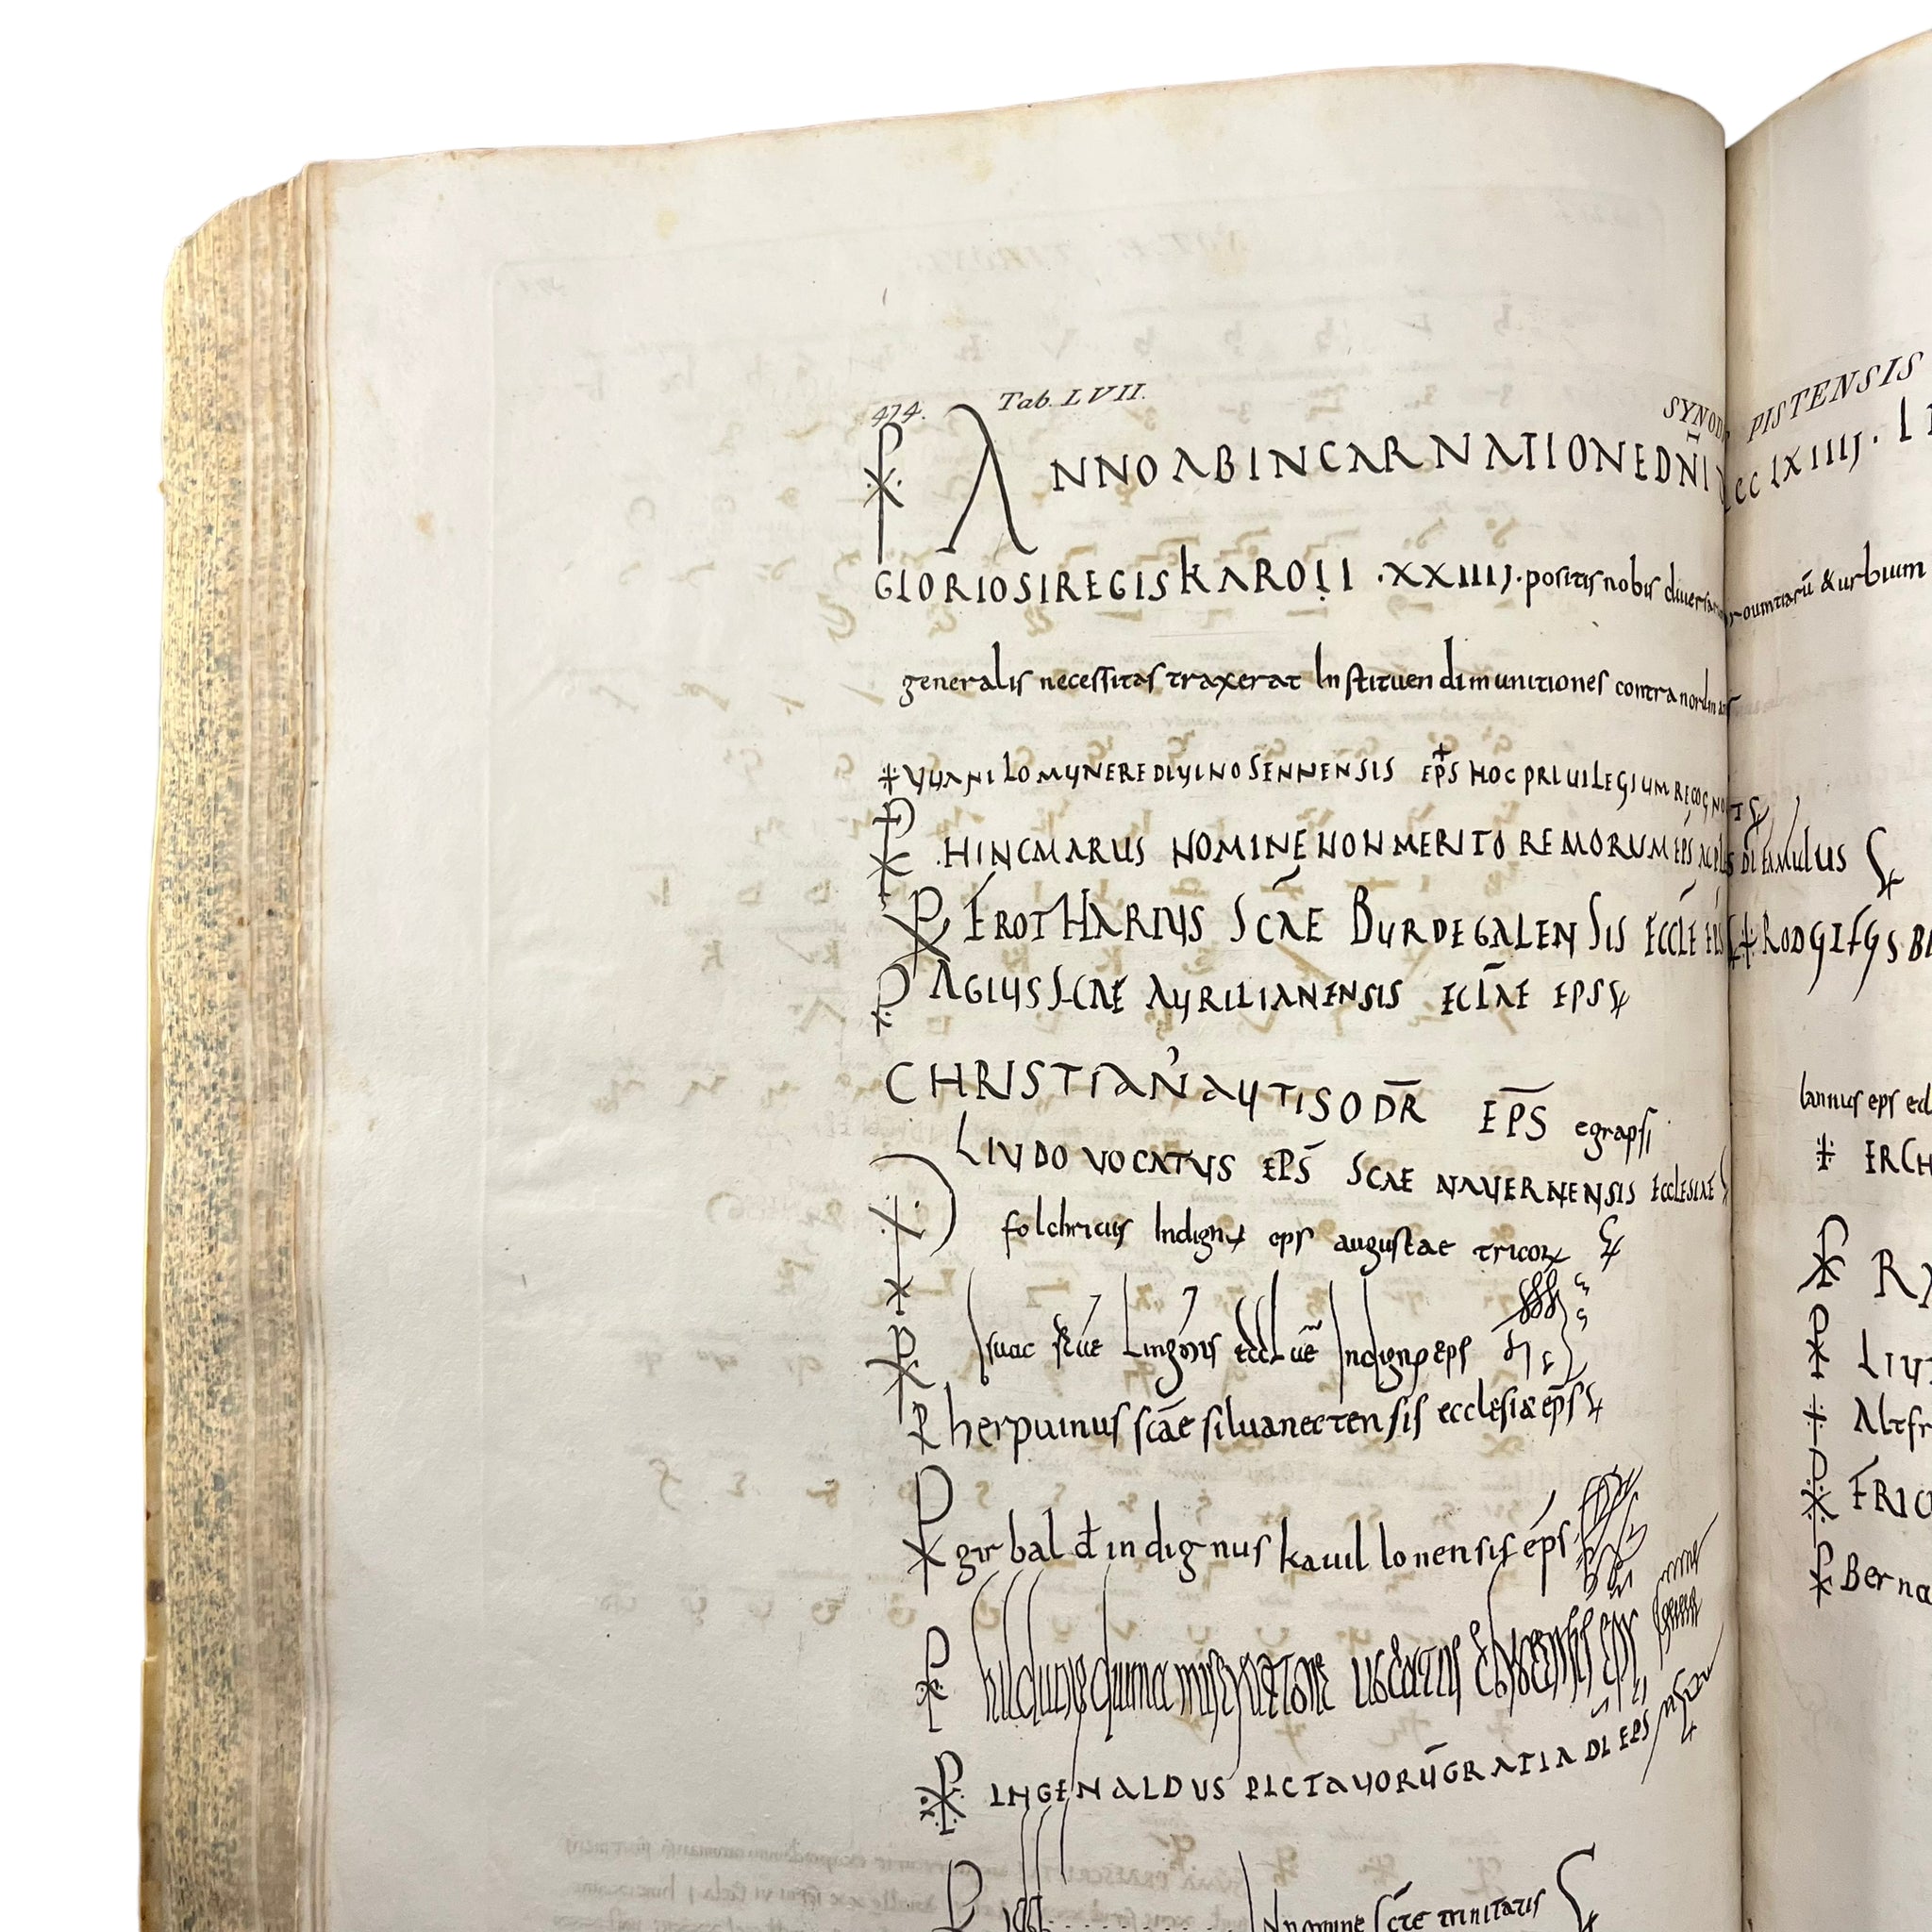 474. Tab. LVII. SYNODI PISTENSIS
ANNO AB INCARNATIONE DN̄I DCCCLXIIIJ.
GLORIOSI REGIS KAROLI .XXIIIJ. positis nobis diuersarum prouintiarū & urbium
generalis necessitas traxerat Instituendi munitiones contra nordmannos
VVANILO MVNERE DIVINO SENNENSIS EPS HOC PRIVILEGIUM RECOGNOVIT
HINCMARUS NOMINE NON MERITO REMORUM EPS AC PLEBIS DI FAMULUS
FROTHARIVS SCAE BURDEGALENSIS ECCLE EPS
AGIVS SCAE AVRILIANENSIS ECLAE EPS
CHRISTIAN' AVTISODR̄ EP̄S egrapsi
LIVDO VOCATVS EPS̄ SCAE NAVERNENSIS ECCLESIAE
folchricus Indign; eps augustae tricor
Isaac Lingonis Indign; eps
herpuinus scāe siluanectensis ecclesiae ēps
girbald indignus kauillonensis eps
INGENALDUS PICTAVORŪ GRATIA DI EPS
In nomine scte trinitatis
RODGIFGS
lannus eps
ERCH
RA
LIVT
Altfr
FRIC
Berna